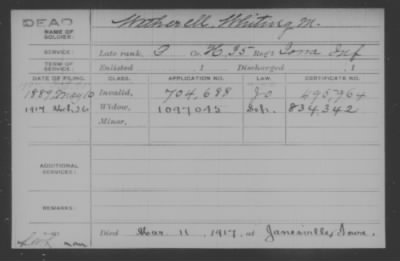 DEAD
NAME OF SOLDIER: Witherell, Whiting M.
SERVICE: Late rank, P Co. H, 35 Reg't Iowa Inf
TERM OF SERVICE: Enlisted , 1 Discharged , 1
DATE OF FILING. CLASS. APPLICATION NO. LAW. CERTIFICATE NO.
1889 May 10 Invalid, 704,688 495,964
1917 Widow, 1097045 834,342
Minor,
ADDITIONAL SERVICES:
REMARKS:
Died Mar. 11, 1917, at Janesville, Iowa.